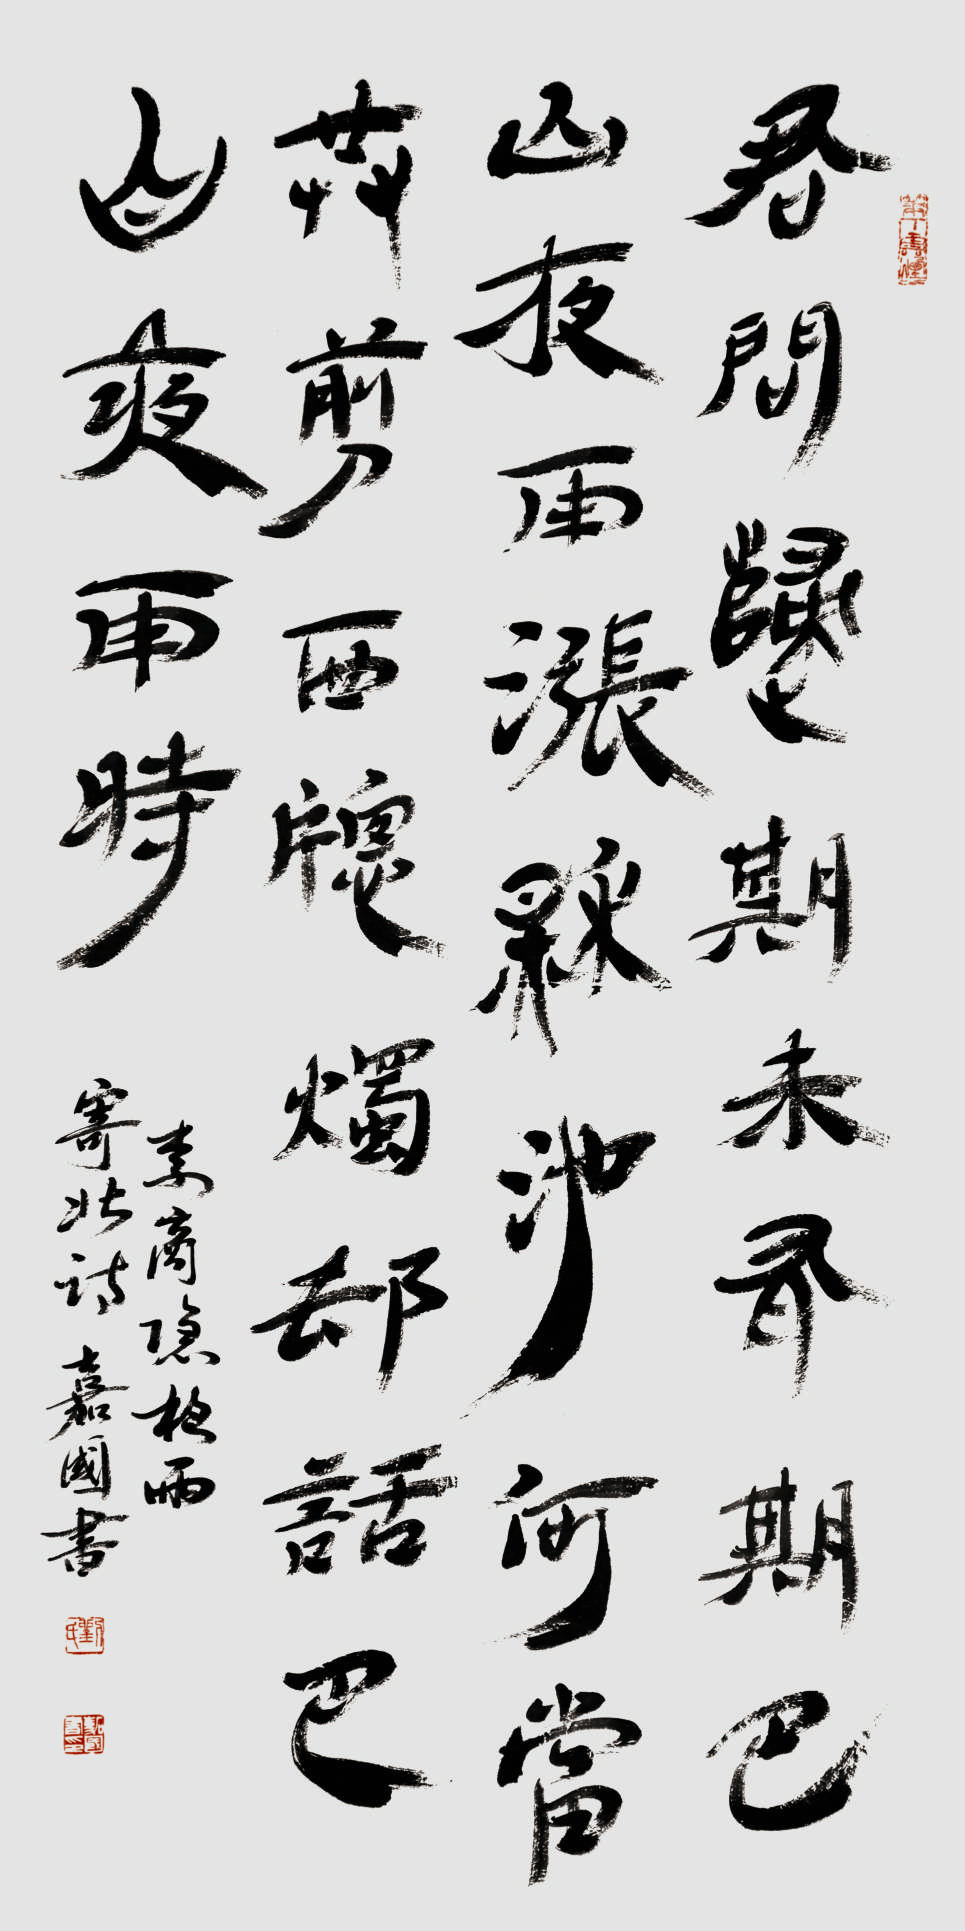 君問歸期未有期巴
山夜雨漲秋池何當
共剪西牕燭却話巴
山夜雨時
李商隱夜雨
寄北詩 嘉國書